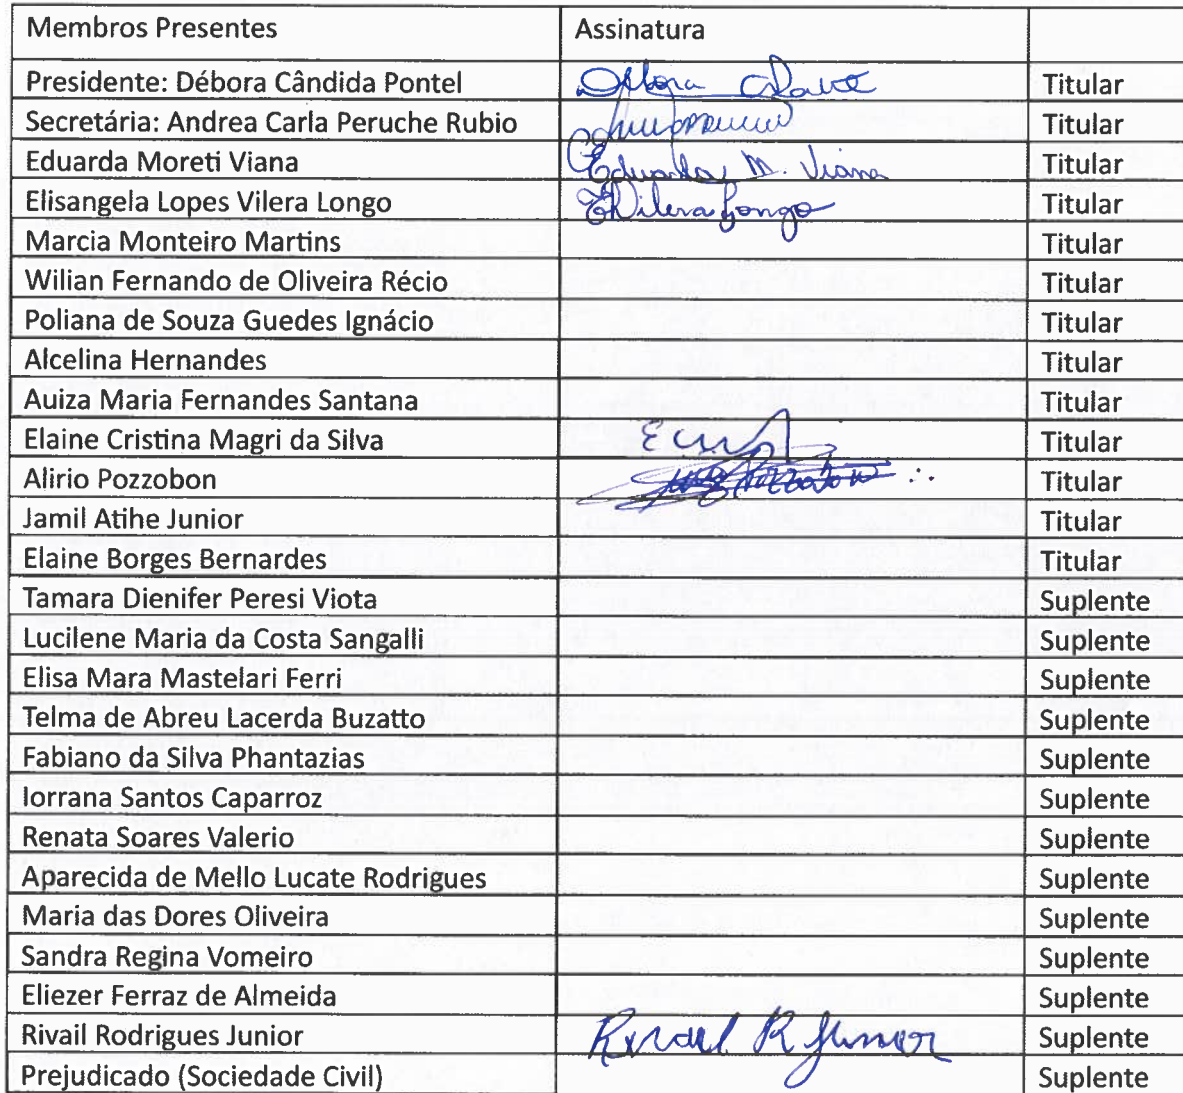 Membros Presentes Assinatura
Presidente: Débora Cândida Pontel Débora Titular
Secretária: Andrea Carla Peruche Rubio Titular
Eduarda Moreti Viana Eduarda M. Viana Titular
Elisangela Lopes Vilera Longo EVilera Longo Titular
Marcia Monteiro Martins Titular
Wilian Fernando de Oliveira Récio Titular
Poliana de Souza Guedes Ignácio Titular
Alcelina Hernandes Titular
Auiza Maria Fernandes Santana Titular
Elaine Cristina Magri da Silva Titular
Alirio Pozzobon Titular
Jamil Atihe Junior Titular
Elaine Borges Bernardes Titular
Tamara Dienifer Peresi Viota Suplente
Lucilene Maria da Costa Sangalli Suplente
Elisa Mara Mastelari Ferri Suplente
Telma de Abreu Lacerda Buzatto Suplente
Fabiano da Silva Phantazias Suplente
Iorrana Santos Caparroz Suplente
Renata Soares Valerio Suplente
Aparecida de Mello Lucate Rodrigues Suplente
Maria das Dores Oliveira Suplente
Sandra Regina Vomeiro Suplente
Eliezer Ferraz de Almeida Suplente
Rivail Rodrigues Junior Rivail R Junior Suplente
Prejudicado (Sociedade Civil) Suplente